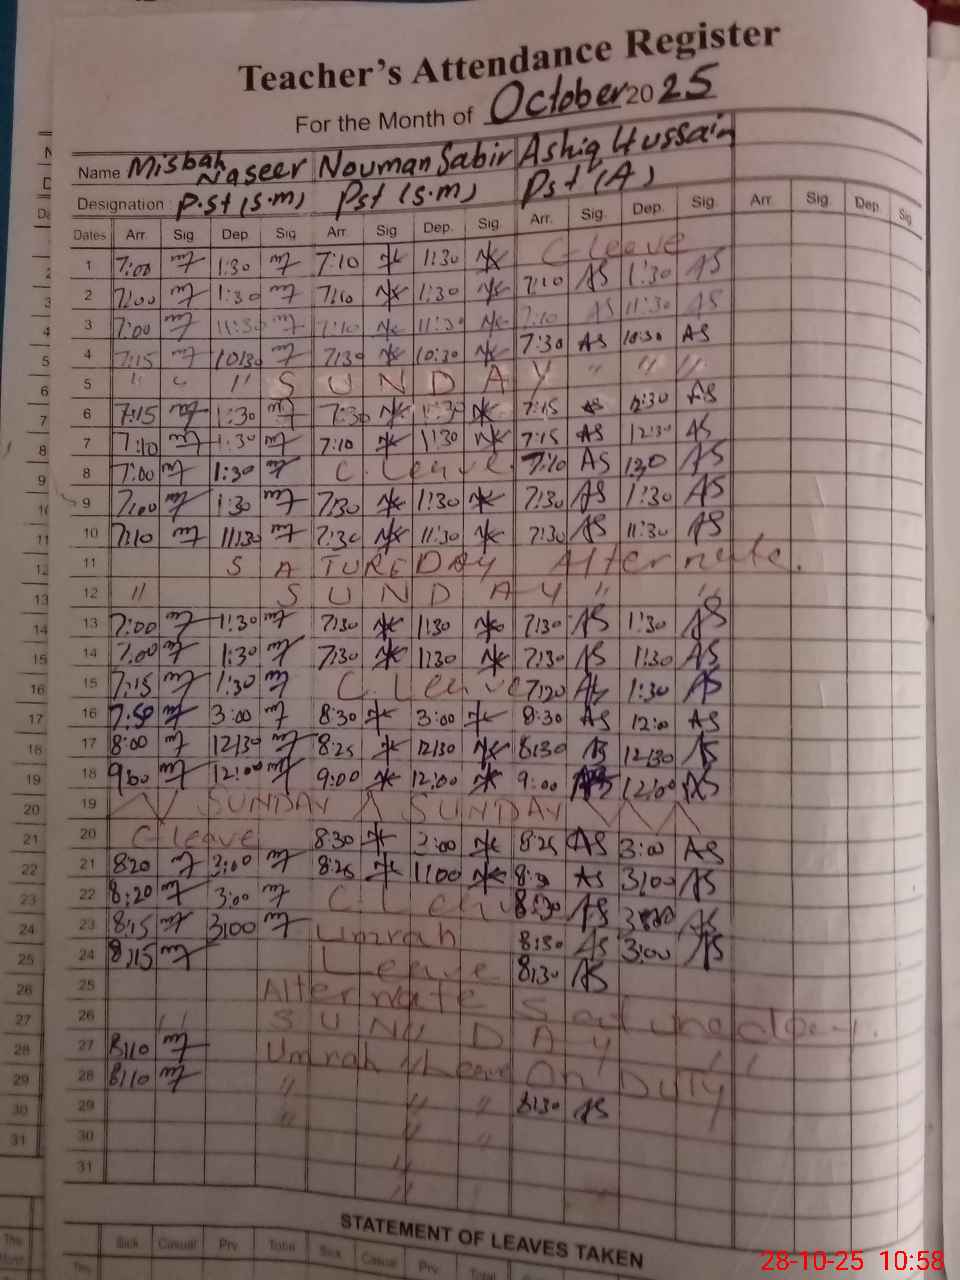 Teacher's Attendance Register
For the Month of October 2025
Name Misbah Naseer Nouman Sabir Ashiq Hussain
Designation : P.st (S.m) Pst (S.m) Pst (A)
Dates Arr. Sig. Dep. Sig. Arr. Sig. Dep. Sig. Arr. Sig. Dep. Sig. Arr. Sig. Dep. Sig.
1 7:00 1:30 7:10 1:30 C-leave
2 7:00 1:30 7:10 1:30 7:10 AS 1:30 AS
3 7:00 11:30 7:10 11:30 7:10 AS 11:30 AS
4 7:15 10:30 7:30 10:30 7:30 AS 10:30 AS
5 " " SUNDAY " " "
6 7:15 1:30 7:30 1:30 7:15 AS 12:30 AS
7 7:10 1:30 7:10 1:30 7:15 AS 12:30 AS
8 7:00 1:30 C. Leave. 7:10 AS 1:30 AS
9 7:00 1:30 7:30 1:30 7:30 AS 1:30 AS
10 7:10 11:30 7:30 11:30 7:30 AS 11:30 AS
11 SATUREDAY Alternate.
12 " SUNDAY " "
13 7:00 1:30 7:30 1:30 7:30 AS 1:30 AS
14 7:00 1:30 7:30 1:30 7:30 AS 1:30 AS
15 7:15 1:30 C. Leave 7:20 AS 1:30 AS
16 7:50 3:00 8:30 3:00 8:30 AS 12:00 AS
17 8:00 12:30 8:25 12:30 8:30 AS 12:30 AS
18 9:00 12:00 9:00 12:00 9:00 AS 12:00 AS
19 SUNDAY SUNDAY
20 C leave 8:30 2:00 8:25 AS 3:00 AS
21 8:20 3:00 8:25 1:00 8:30 AS 3:00 AS
22 8:20 3:00 C. L 8:30 AS 3:00 AS
23 8:15 3:00 Umrah 8:30 AS 3:00 AS
24 8:15 Leave 8:30 AS
25 Alternate
26 " SUNDAY "
27 8:10 Umrah Leave On DUTY
28 8:10 " " " 8:30 AS
29 " "
30 "
31 "
STATEMENT OF LEAVES TAKEN
Sick Casual Prv Total Sick Casual Prv Total
28-10-25 10:58